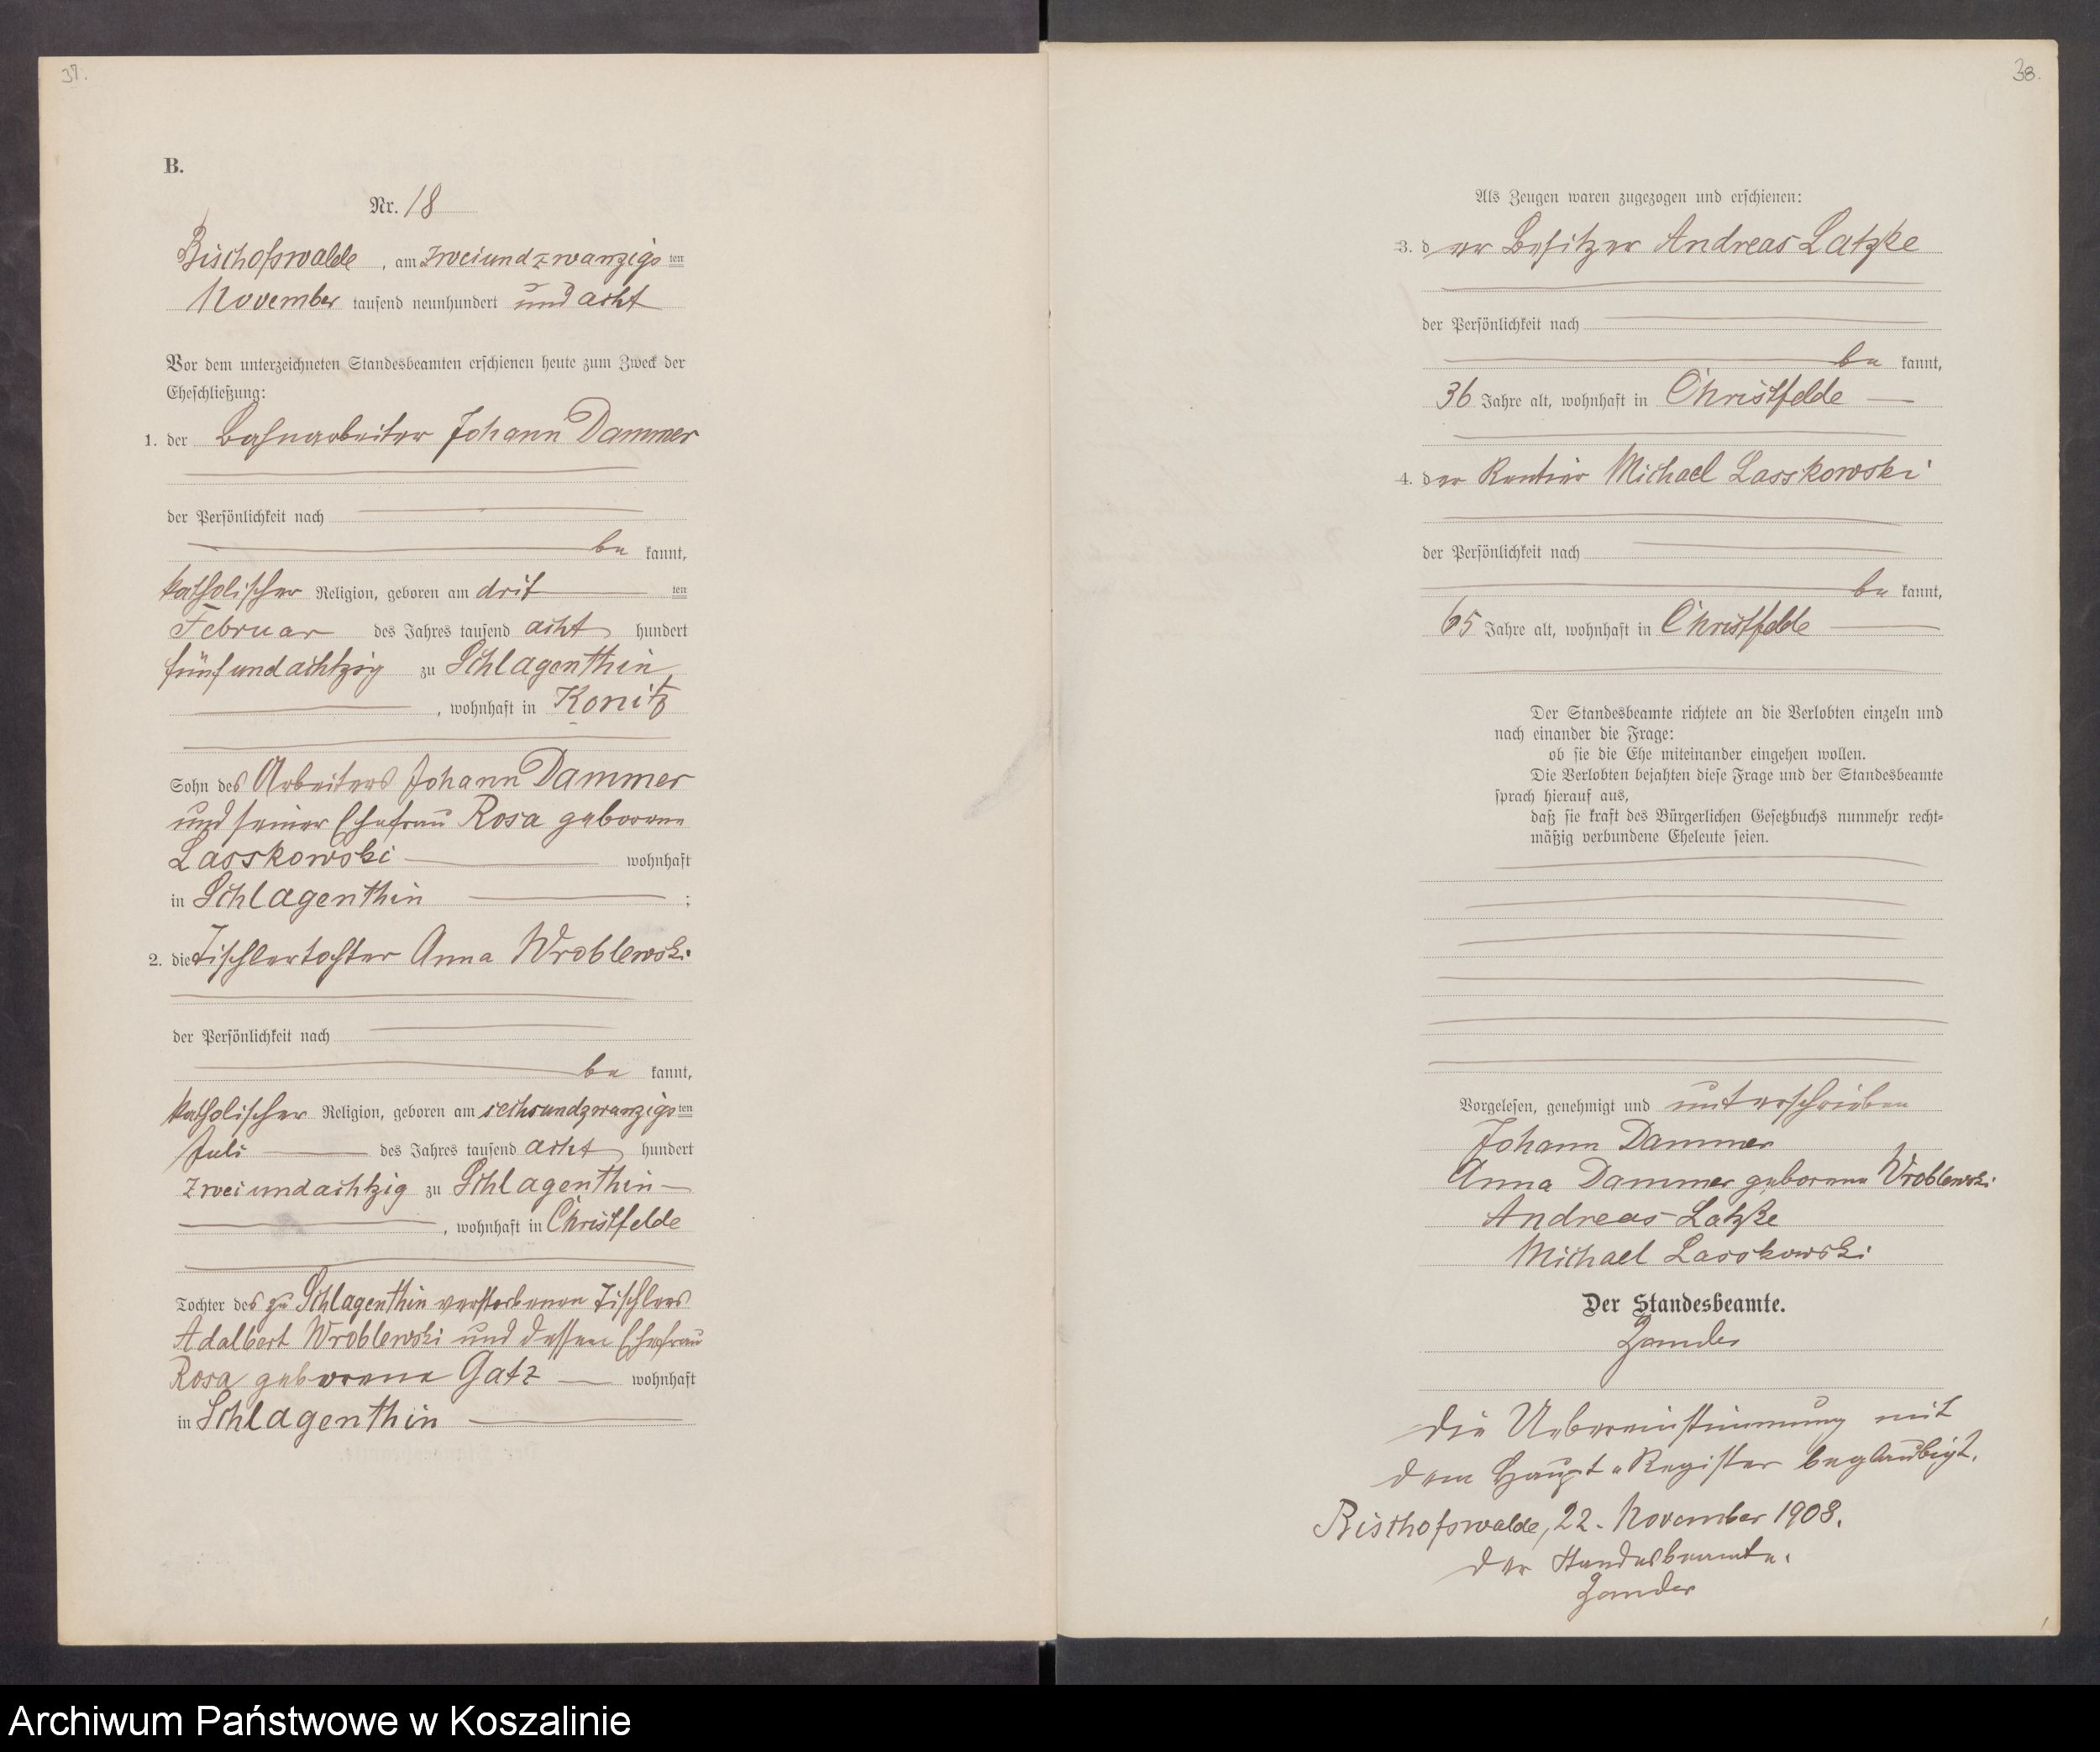 37.
B.
Nr. 18
Bischofswalde, am zweiundzwanzigsten
November tausend neunhundert und acht
Vor dem unterzeichneten Standesbeamten erschienen heute zum Zweck der
Eheschließung:
1. der Bahnarbeiter Johann Dammer
der Persönlichkeit nach
be kannt,
katholischer Religion, geboren am drit ten
Februar des Jahres tausend acht hundert
fünfundachtzig zu Schlagenthin
, wohnhaft in Konitz
Sohn des Arbeiters Johann Dammer
und seiner Ehefrau Rosa geborene
Lasskowski wohnhaft
in Schlagenthin ;
2. die Tischlertochter Anna Wroblewski
der Persönlichkeit nach
be kannt,
katholischer Religion, geboren am sechsundzwanzigsten
Juli des Jahres tausend acht hundert
zweiundachtzig zu Schlagenthin
, wohnhaft in Christfelde
Tochter des zu Schlagenthin verstorbenen Tischlers
Adalbert Wroblewski und dessen Ehefrau
Rosa geborene Gatz wohnhaft
in Schlagenthin
38.
Als Zeugen waren zugezogen und erschienen:
3. der Besitzer Andreas Latzke
der Persönlichkeit nach
be kannt,
36 Jahre alt, wohnhaft in Christfelde
4. der Rentier Michael Lasskowski
der Persönlichkeit nach
be kannt,
65 Jahre alt, wohnhaft in Christfelde
Der Standesbeamte richtete an die Verlobten einzeln und
nach einander die Frage:
ob sie die Ehe miteinander eingehen wollen.
Die Verlobten bejahten diese Frage und der Standesbeamte
sprach hierauf aus,
daß sie kraft des Bürgerlichen Gesetzbuchs nunmehr recht-
mäßig verbundene Eheleute seien.
Vorgelesen, genehmigt und unterschrieben
Johann Dammer
Anna Dammer geborene Wroblewski
Andreas Latzke
Michael Lasskowski
Der Standesbeamte.
Zander
Die Uebereinstimmung mit
dem Haupt-Register beglaubigt.
Bischofswalde, 22. November 1908.
Der Standesbeamte.
Zander
Archiwum Państwowe w Koszalinie